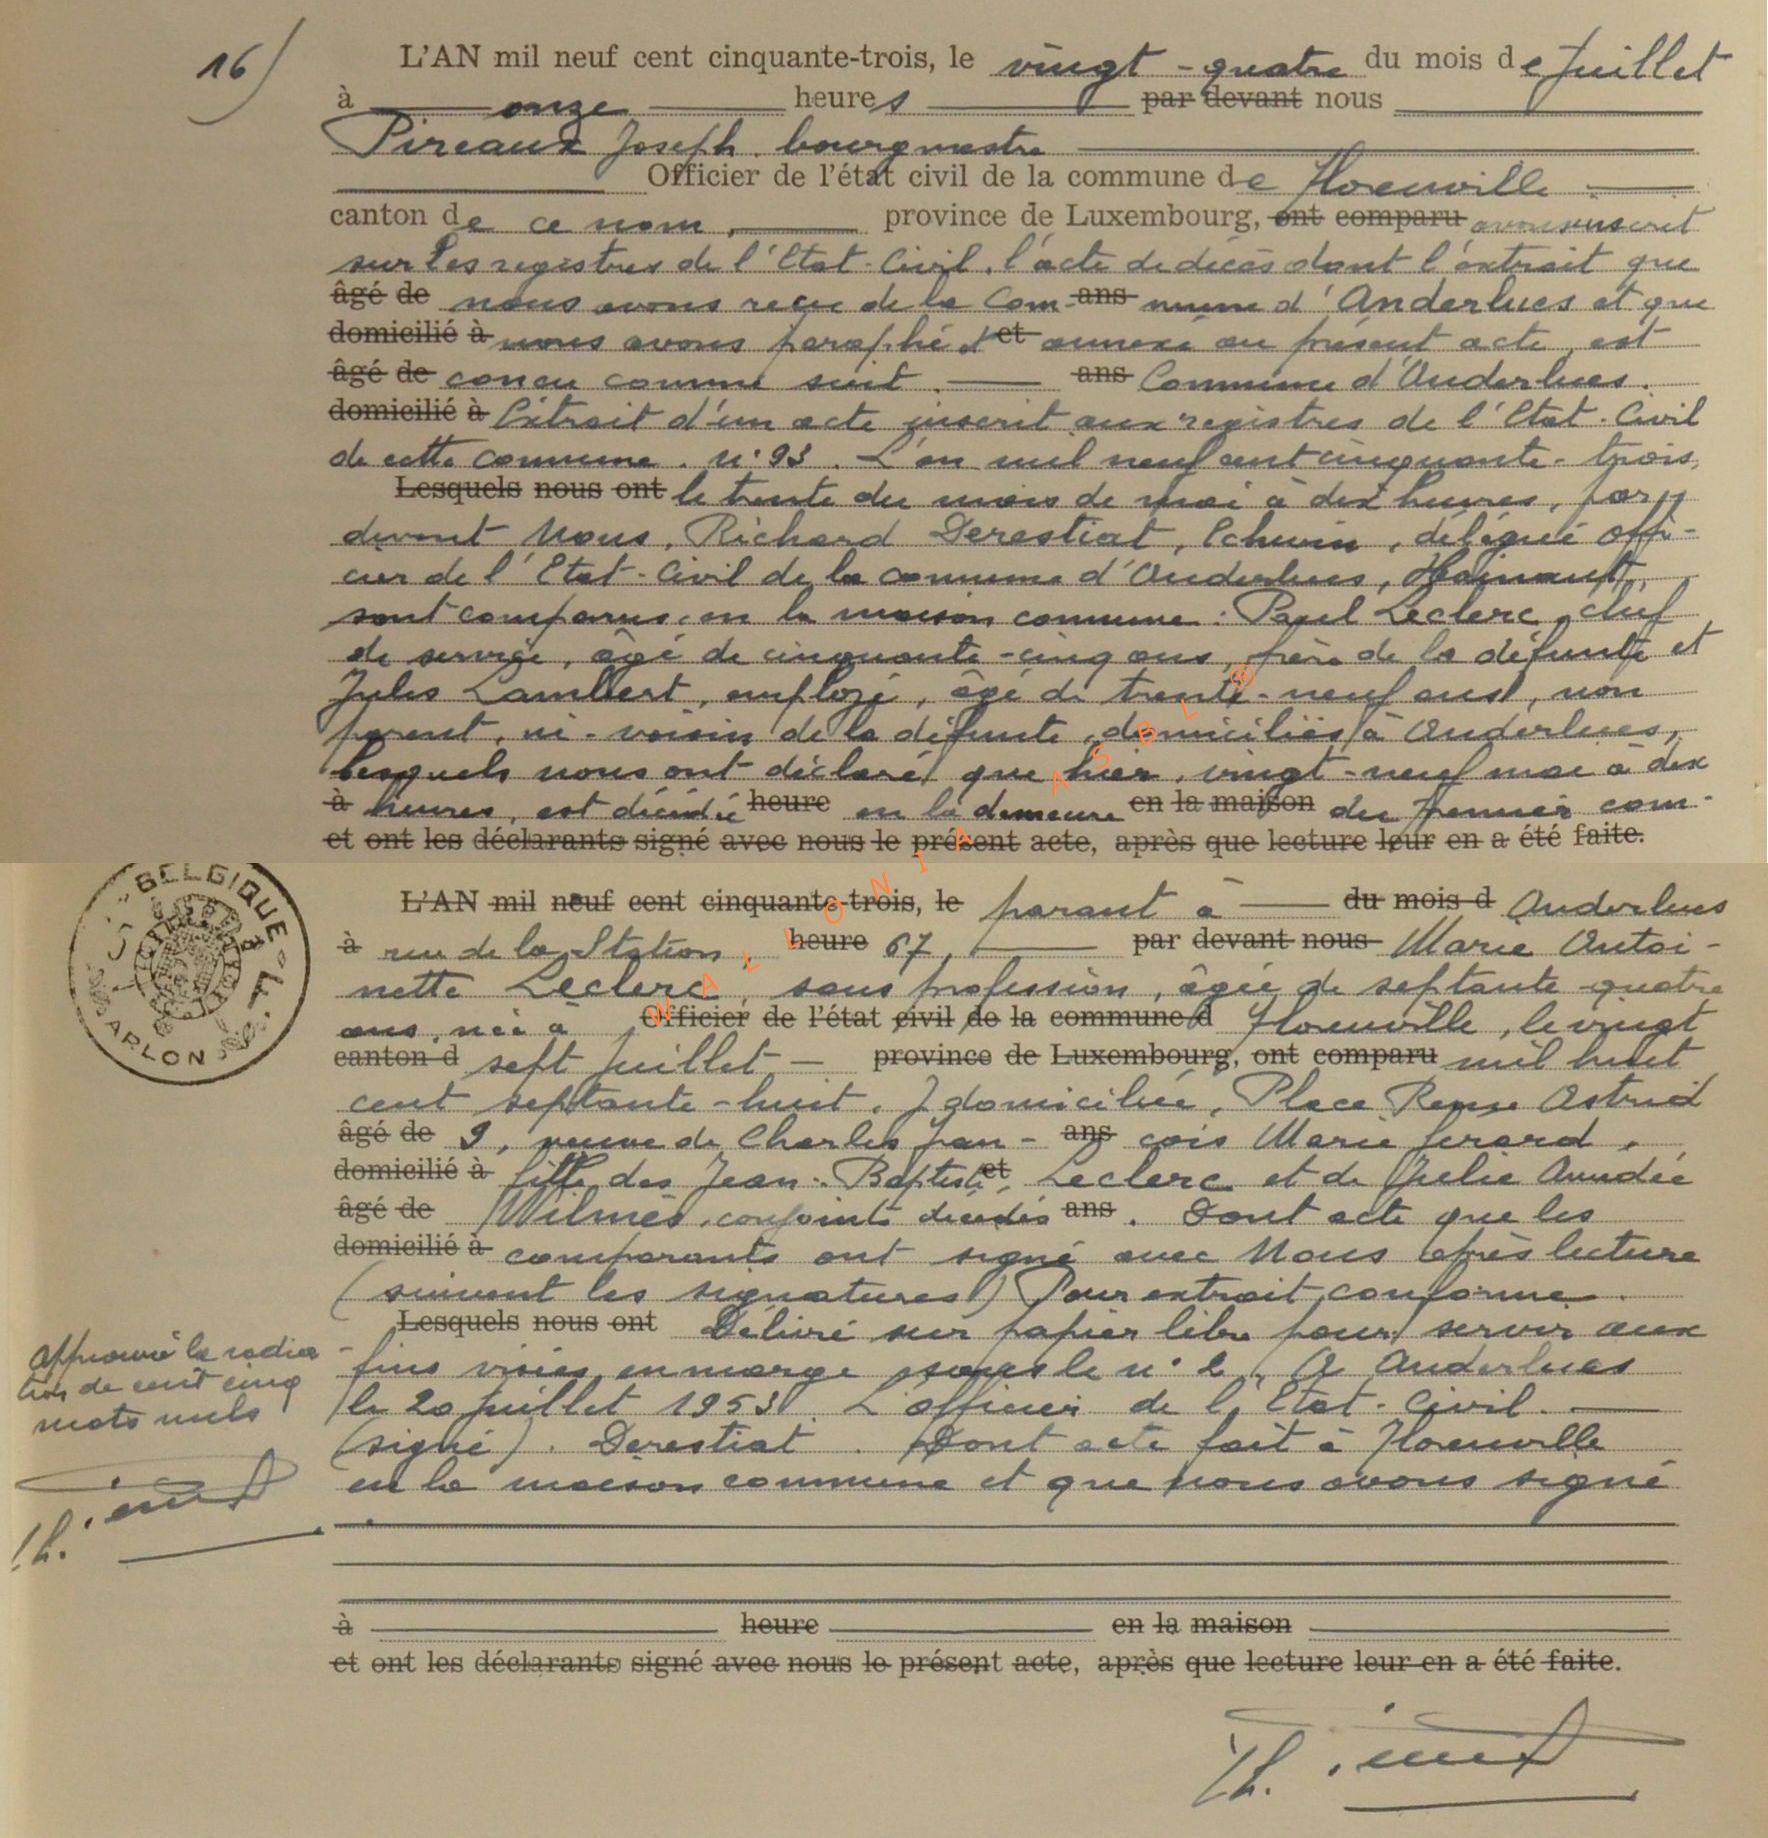 16)
L'AN mil neuf cent cinquante-trois, le vingt-quatre du mois de Juillet
à onze heures par devant nous
Pireaux Joseph. bourgmestre
Officier de l'état civil de la commune de Florenville
canton de ce nom, province de Luxembourg, ont comparu avons inscrit
sur les registres de l'Etat-Civil, l'acte de décès dont l'extrait que
âgé de nous avons reçu de la Com- ans mune d'Anderlues et que
domicilié à nous avons paraphé et et annexé au présent acte, est
âgé de concu comme suit. ans Commune d'Anderlues.
domicilié à Extrait d'un acte inscrit aux registres de l'Etat-Civil
de cette commune. n° 93. L'an mil neuf cent cinquante-trois,
Lesquels nous ont le trente du mois de mai à dix heures, par
devant Nous, Richard Derestiat, Echevin, délégué offi-
cier de l'Etat-Civil de la commune d'Anderlues, Hainaut,
sont comparus en la maison commune: Paul Leclerc, chef
de service, âgé de cinquante-cinq ans, frère de la défunte et
Jules Lambert, employé, âgé de trente-neuf ans, non
parent, ni-voisin de la défunte, domiciliés à Anderlues,
lesquels nous ont déclaré que hier, vingt-neuf mai à dix
à heures, est décédée heure en la demeure en la maison du premier com-
et ont les déclarants signé avec nous le présent acte, après que lecture leur en a été faite.
WALLONIA ASBL ®
BELGIQUE
5 F.
ARLON
L'AN mil neuf cent cinquante-trois, le parant à du mois d Anderlues
à rue de la Station, heure 67, par devant nous Marie Antoi-
nette Leclerc, sans profession, âgée de septante-quatre
ans, née à Officier de l'état civil de la commune d Florenville, le vingt
canton d sept Juillet province de Luxembourg, ont comparu mil huit
cent septante-huit, y domiciliée, Place Reine Astrid
âgé de 9, veuve de Charles Fran- ans cois Marie Gerard,
domicilié à fille des Jean-Baptiste et Leclerc et de Julie Amédée
âgé de Wilmès, conjoints décédés ans. Dont acte que les
domicilié à comparants ont signé avec Nous après lecture
(suivent les signatures) Pour extrait conforme.
Lesquels nous ont Délivré sur papier libre pour servir aux
fins visées en marge sous le n° 2, A Anderlues
le 20 Juillet 1953. L'officier de l'Etat-Civil.
(signé). Derestiat. Dont acte fait à Florenville
en la maison commune et que nous avons signé
approuvé la radia
tion de cent cinq
mots nuls
à heure en la maison
et ont les déclarants signé avec nous le présent acte, après que lecture leur en a été faite.